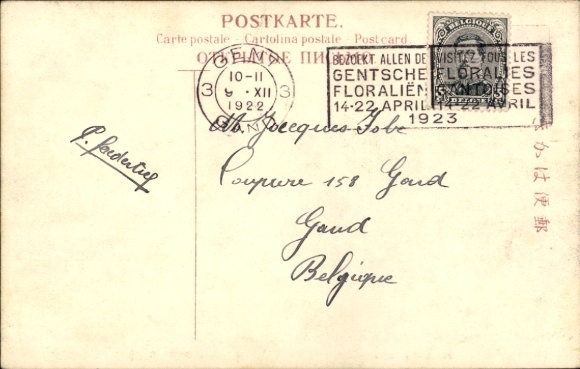 POSTKARTE.
Carte postale - Cartolina postale - Postcard
ОТКРЫТОЕ ПИСЬМО
BELGIQUE
3 GENT 3
10-11
9 · XII
1922
GAND
BEZOEKT ALLEN DE VISITEZ TOUS LES
GENTSCHE FLORALIES
FLORALIËN GANTOISES
14-22 APRIL 14-22 AVRIL
1923
M. Jacques Fobe
Coupure 158 Gand
Gand
Belgique
P.
かは便郵